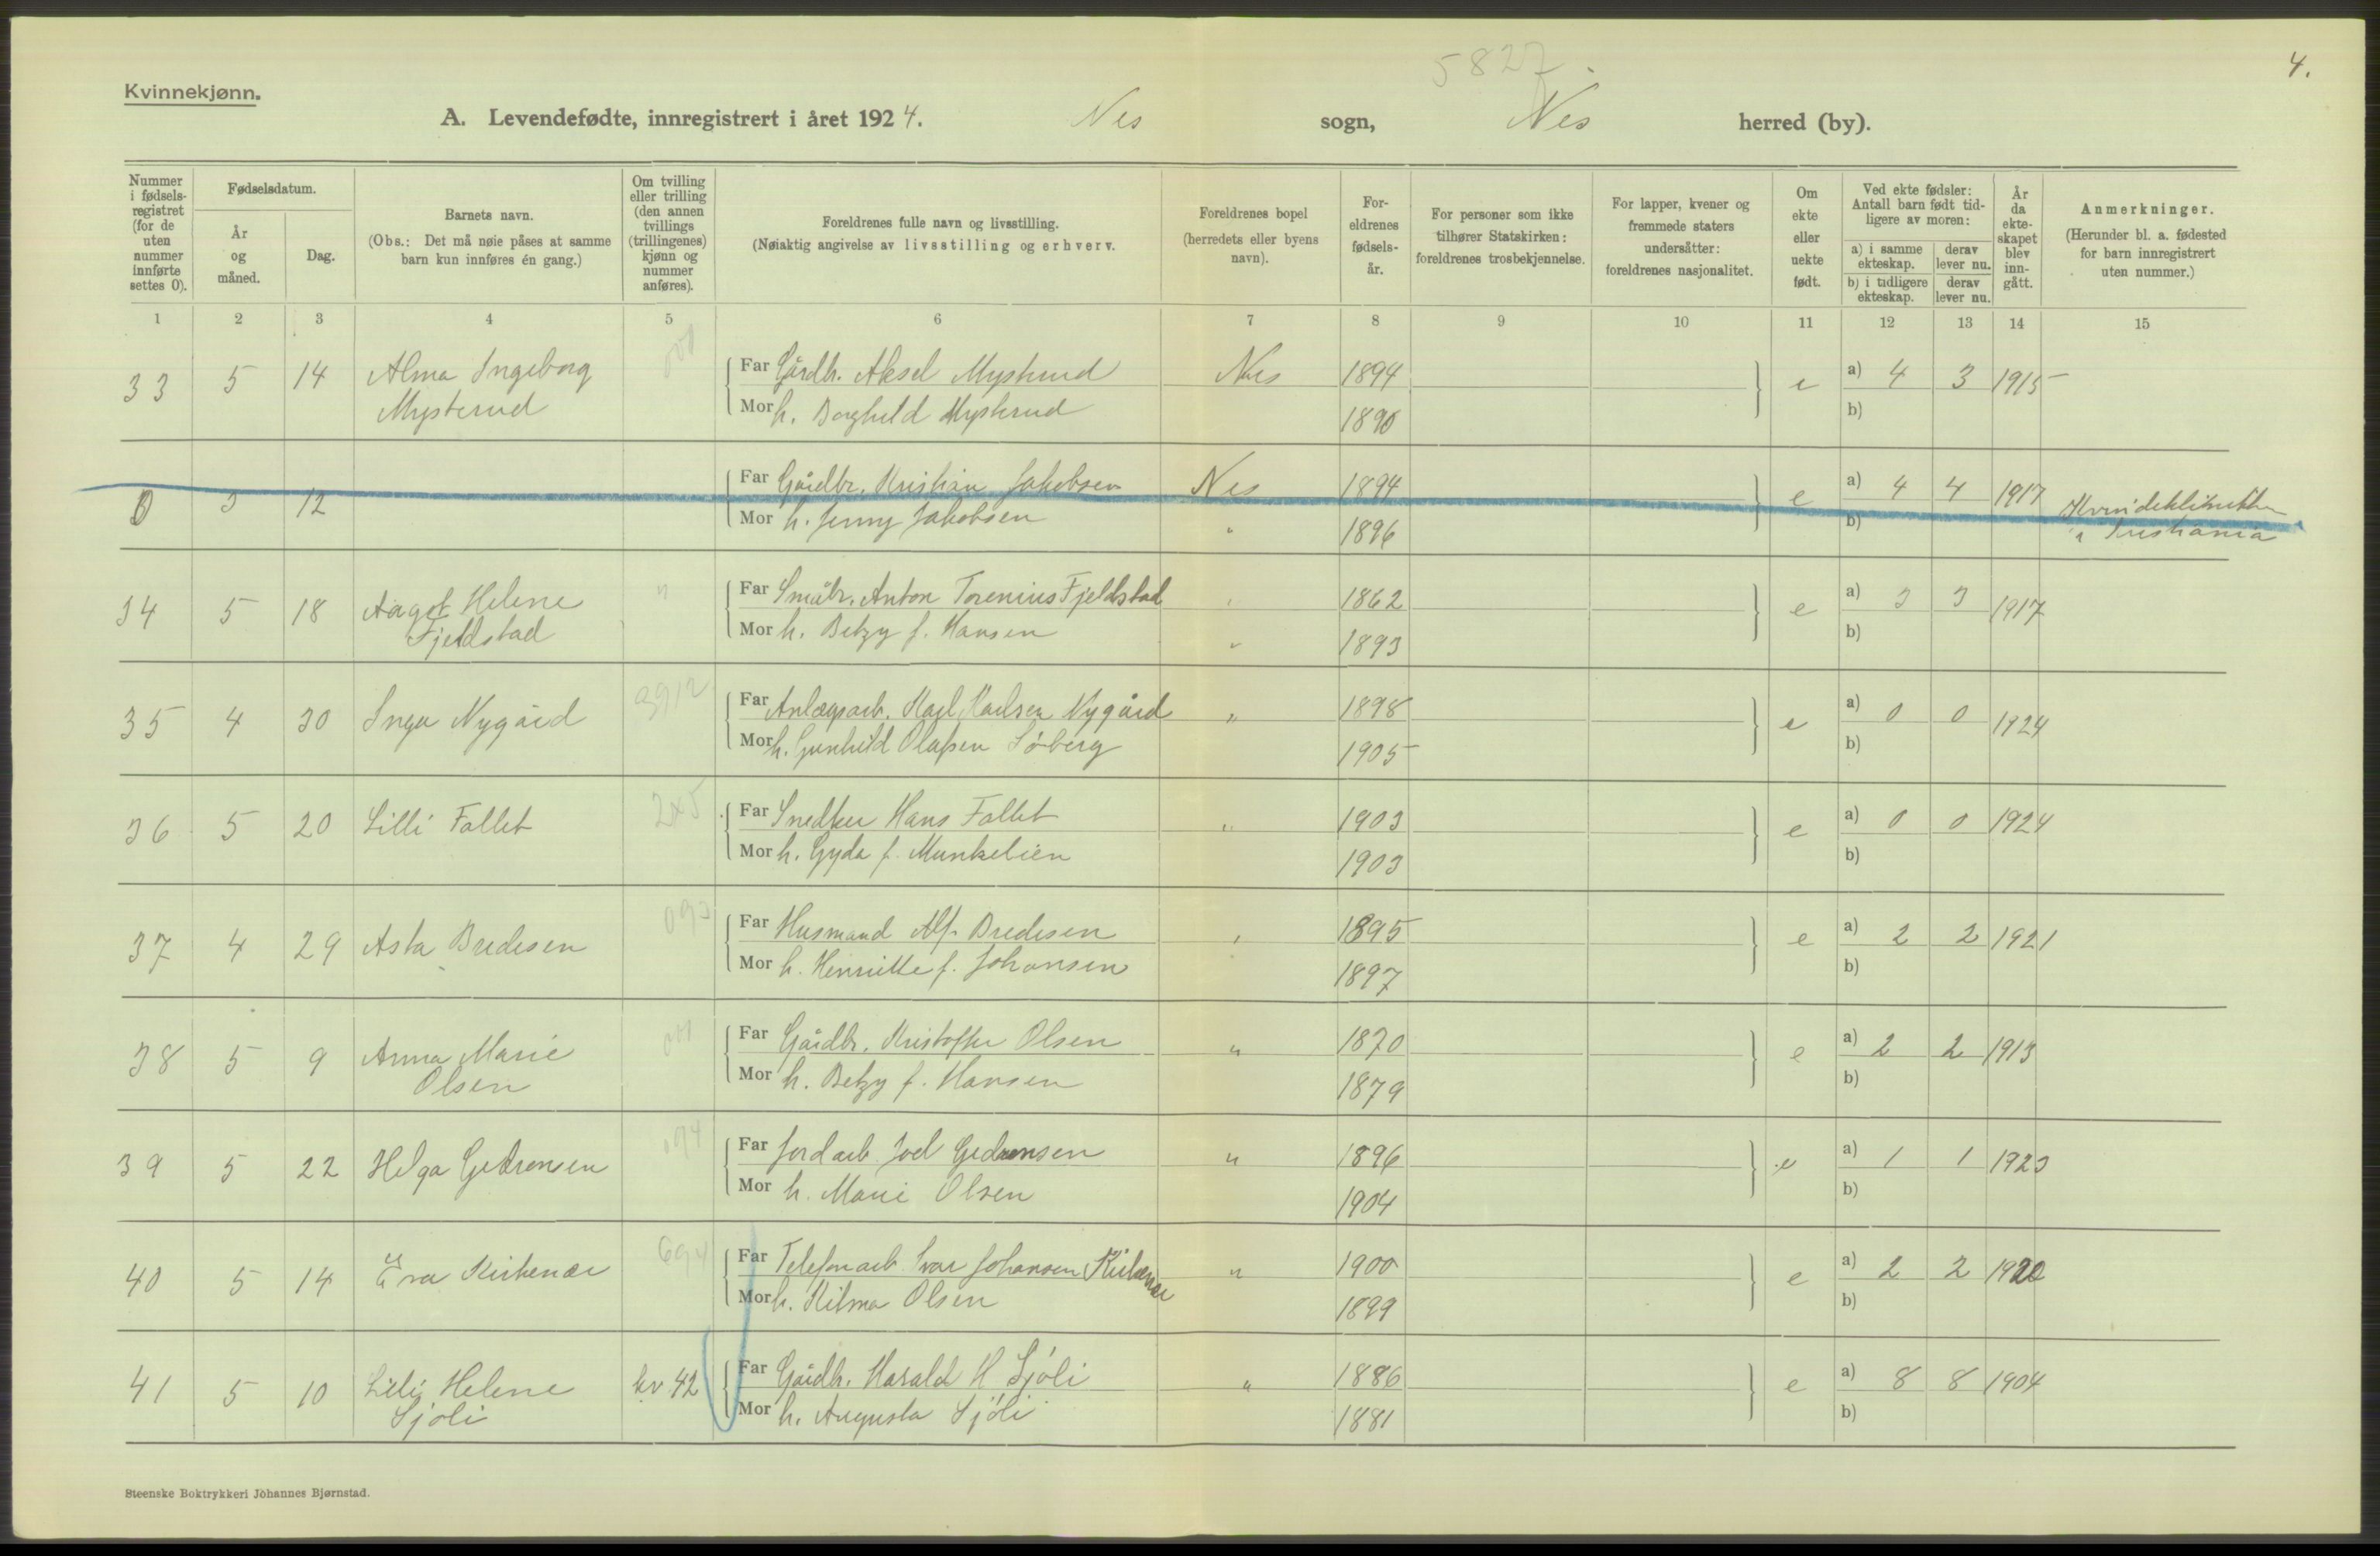 5827
4.
Kvinnekjønn.
A. Levendefødte, innregistrert i året 1924. Nes sogn, Nes herred (by).
Nummer i fødselsregistret (for de uten nummer innførte settes 0).
Fødselsdatum.
År og måned.
Dag.
Barnets navn.
(Obs.: Det må nøie påses at samme barn kun innføres én gang.)
Om tvilling eller trilling (den annen tvillings (trillingenes) kjønn og nummer anføres).
Foreldrenes fulle navn og livsstilling.
(Nøiaktig angivelse av livsstilling og erhverv.
Foreldrenes bopel (herredets eller byens navn).
Foreldrenes fødselsår.
For personer som ikke tilhører Statskirken: foreldrenes trosbekjennelse.
For lapper, kvener og fremmede staters undersåtter: foreldrenes nasjonalitet.
Om ekte eller uekte født.
Ved ekte fødsler: Antall barn født tidligere av moren:
a) i samme ekteskap. derav lever nu.
b) i tidligere ekteskap. derav lever nu.
År da ekteskapet blev inngått.
Anmerkninger.
(Herunder bl. a. fødested for barn innregistrert uten nummer.)
1 2 3 4 5 6 7 8 9 10 11 12 13 14 15
33 5 14 Alma Ingeborg Far Gårdbr. Aksel Mysterud Nes 1894 e a) 4 3 1915
Mysterud Mor h. Borghild Mysterud 1890 b)
0 3 12 Far Gårdbr. Kristian Jakobsen Nes 1894 e a) 4 4 1917 Kvindeklinikken
Mor h. Jenny Jakobsen " 1896 b) i Kristiania
34 5 18 Aagot Helene " Far Småbr. Anton Torenius Fjeldstad " 1862 e a) 3 3 1917
Fjeldstad Mor h. Betzy f. Hansen " 1893 b)
35 4 30 Inga Nygård 3912 Far Anlægsarb. Karl Karlsen Nygård " 1898 e a) 0 0 1924
Mor h. Gunhild Olafsen Söberg 1905 b)
36 5 20 Lilli Fallet 2x5 Far Snedker Hans Fallet " 1903 e a) 0 0 1924
Mor h. Gyda f. Munkelien 1903 b)
37 4 29 Asta Bredesen 093 Far Husmand Alf Bredesen " 1895 e a) 2 2 1921
Mor h. Henriette f. Johansen 1897 b)
38 5 9 Anna Marie Far Gårdbr. Kristoffer Olsen " 1870 e a) 2 2 1913
Olsen Mor h. Betzy f. Hansen 1879 b)
39 5 22 Helga Gedronsen 094 Far Jordarb. Joel Gedronsen " 1896 e a) 1 1 1923
Mor h. Marie Olsen 1904 b)
40 5 14 Eva Kirkenær 694 Far Telefonarb. Ivar Johansen Kirkenær " 1900 e a) 2 2 1920
Mor h. Hilma Olsen 1899 b)
41 5 10 Lilli Helene kv. 42 Far Gårdbr. Harald H Sjöli " 1886 e a) 8 8 1904
Sjöli Mor h. Augusta Sjöli 1881 b)
Steenske Boktrykkeri Johannes Bjørnstad.